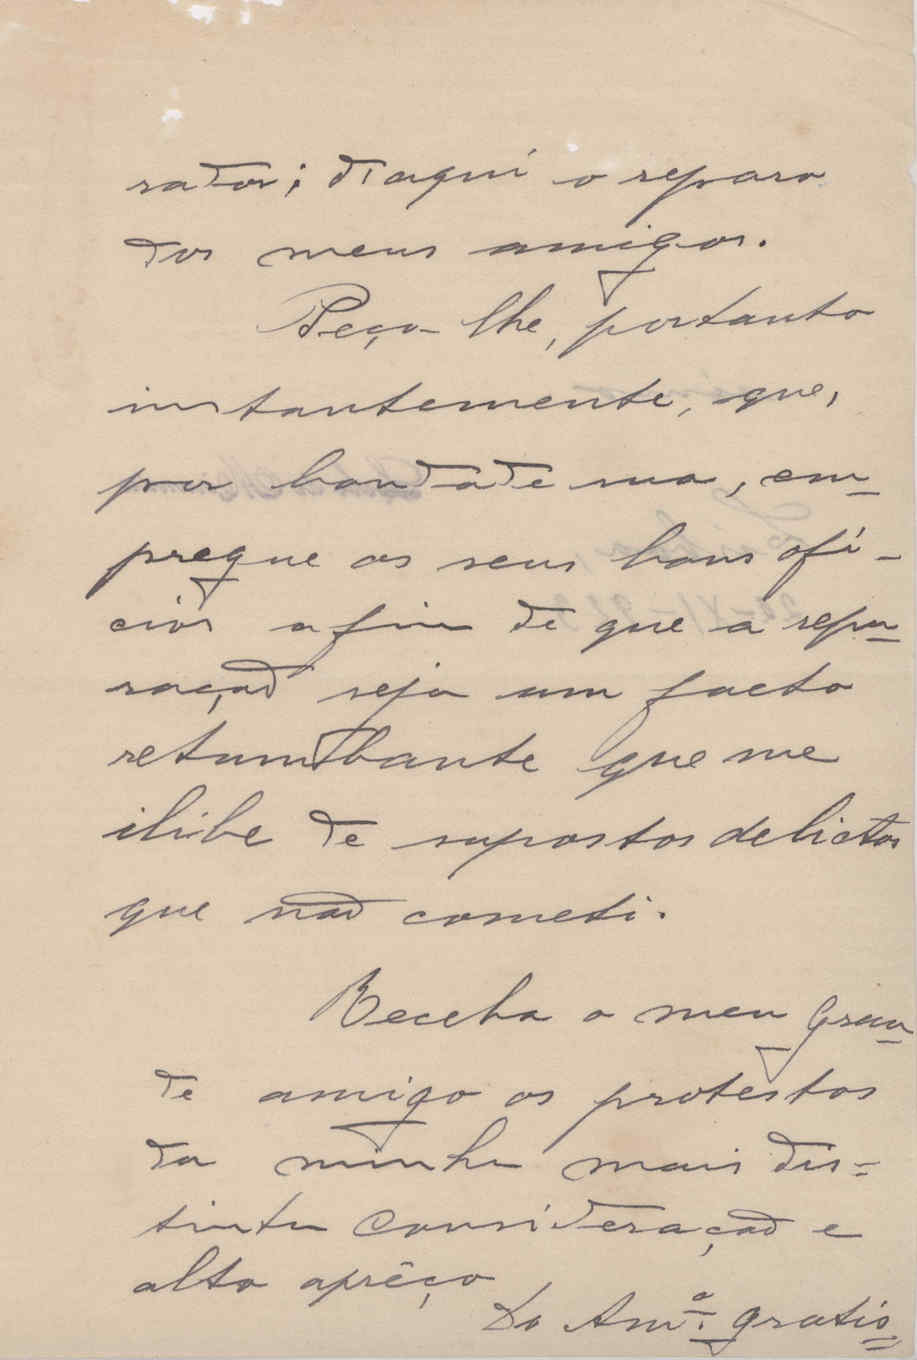 rador; d'aqui o reparo
dos meus amigos.
Peço-lhe, portanto
instantemente, que,
por bondade sua, em-
pregue os seus bons ofi-
cios afim de que a repa-
ração seja um facto
retumbante que me
ilibe de supostos delictos
que não cometi.
Receba o meu Gran-
de amigo os protestos
da minha mais dis-
tinta Consideração e
alto aprêço
Do Am.º gratis-